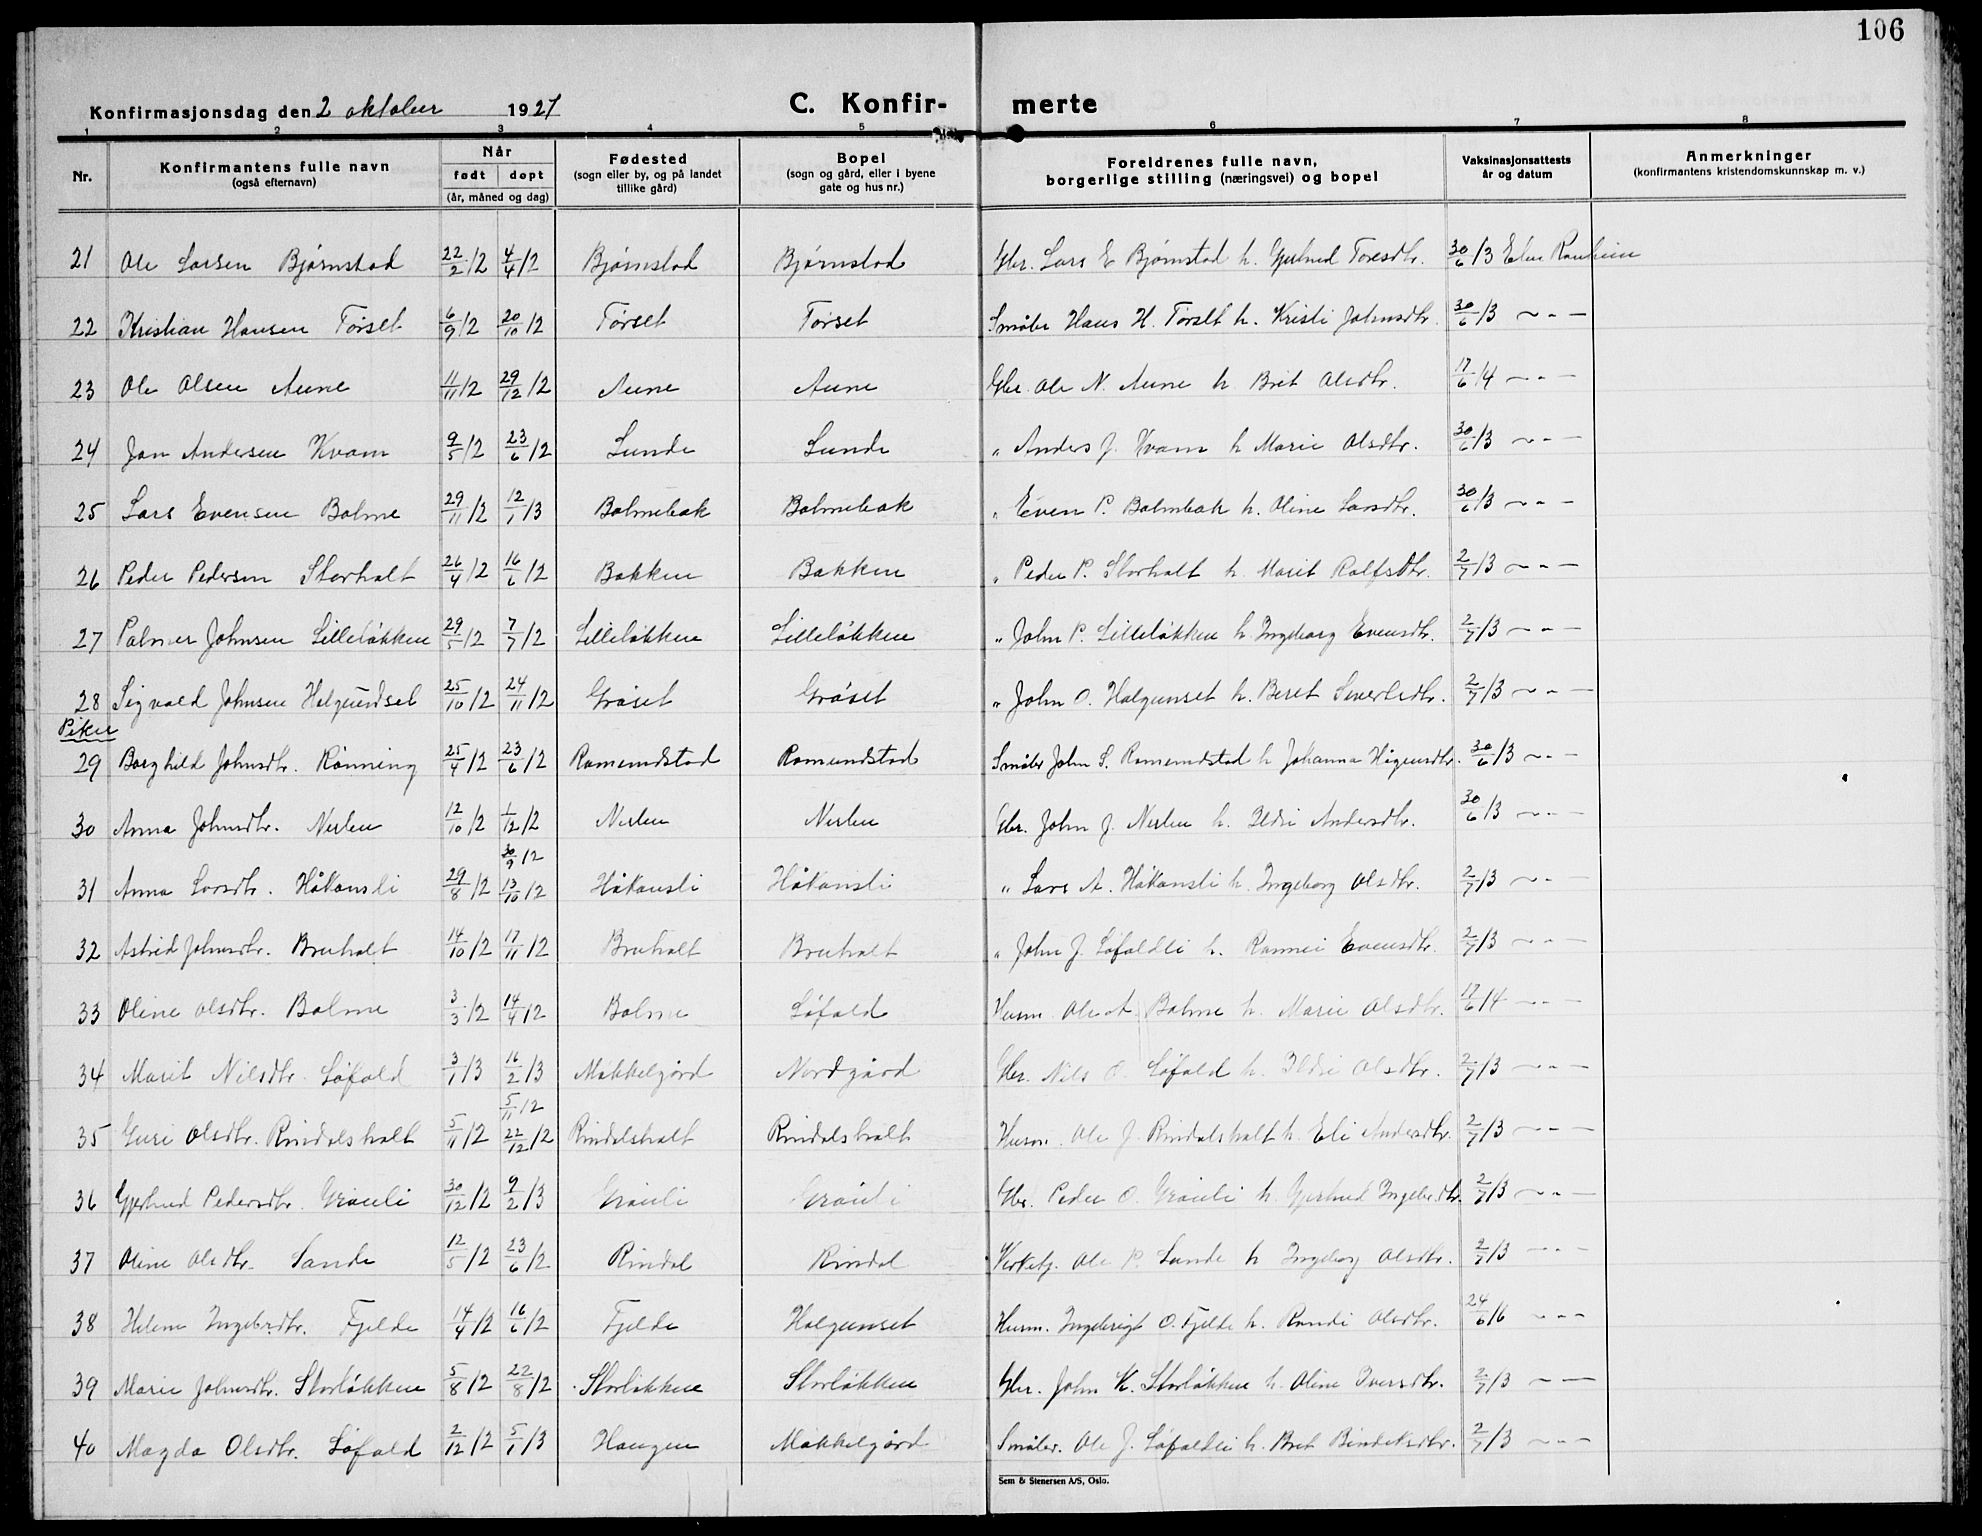 106
Konfirmasjonsdag den 2 oktober 1927 C. Konfir- merte
1 2 3 4 5 6 7 8
Nr. Konfirmantens fulle navn (også efternavn) Når født døpt (år, måned og dag) Fødested (sogn eller by, og på landet tillike gård) Bopel (sogn og gård, eller i byene gate og hus nr.) Foreldrenes fulle navn, borgerlige stilling (næringsvei) og bopel Vaksinasjonsattests år og datum Anmerkninger (konfirmantens kristendomskunnskap m. v.)
21 Ole Larsen Bjørnstad 22/2/12 4/4/12 Bjørnstad Bjørnstad Gbr. Lars E Bjørnstad h. Gjertrud Toresdtr. 30/6/13 Elen Ranheim
22 Kristian Hansen Tørset 6/9/12 20/10/12 Tørset Tørset Småbr Hans H. Tørset h. Kristi Johnsdtr. 30/6/13 ~ - —
23 Ole Olsen Aune 11/11/12 29/12/12 Aune Aune Gbr. Ole N. Aune h Bret Olsdtr. 17/6/14 ~ - —
24 Jon Andersen Kvam 9/5/12 23/6/12 Lunde Lunde " Anders J. Kvam h Marie Olsdtr. 30/6/13 ~ - —
25 Lars Evensen Bolme 29/11/12 12/1/13 Bolmebak Bolmebak " Even P. Bolmbak h. Oline Larsdtr. 30/6/13 ~ - —
26 Peder Pedersen Storholt 26/4/12 16/6/12 Bakken Bakken " Peder P. Storholt h. Marit Rolfsdtr. 2/7/13 ~ - —
27 Palmer Johnsen Lilleløkken 29/5/12 7/7/12 Lilleløkken Lilleløkken " John P. Lilleløkken h. Ingeborg Evensdtr. 2/7/13 ~ - —
28 Sigvald Johnsen Helgundset 25/10/12 24/11/12 Grøset Grøset " John O. Halgunset h. Beret Sivertsdtr. 2/7/13 ~ - —
Piker
29 Borghild Johnsdtr. Rønning 25/4/12 23/6/12 Romundstad Romundstad Småbr John S. Romundstad h Johanna Hågensdtr. 30/6/13 ~ - —
30 Anna Johnsdtr. Nerlen 12/10/12 1/12/12 Nerlen Nerlen Gbr. John J. Nerlen h. Ildri Andersdtr. 30/6/13 ~ - —
30/9/12
31 Anna Larsdtr. Håkansli 29/8/12 13/10/12 Håkansli Håkansli " Lars A. Håkansli h. Ingeborg Olsdtr. 2/7/13 ~ - —
32 Astrid Johnsdtr. Bruholt 14/10/12 17/11/12 Bruholt Bruholt " John J. Løfaldli h. Rannei Evensdtr. 2/7/13 ~ - —
33 Oline Olsdtr. Bolme 3/3/12 14/4/12 Bolme Løfald Husm. Ole A. Bolme h. Marie Olsdtr. 17/6/14 ~ - —
34 Marit Nilsdtr. Løfald 3/1/13 16/2/13 Møkkelgård Nordgård Gbr. Nils O. Løfald h. Ildri Olsdtr. 2/7/13 ~ - —
5/11/12
35 Guri Olsdtr. Rindalsholt 5/11/12 22/12/12 Rindalsholt Rindalsholt Husm. Ole J. Rindalsholt h. Eli Andersdtr. 2/7/13 ~ - —
36 Gjertrud Pedersdtr. Grøuli 30/12/12 9/2/13 Grøuli Grøuli Gbr. Peder O. Grøuli h. Gjertrud Ingebr.dtr. 2/7/13 ~ - —
37 Oline Olsdtr. Sande 12/5/12 23/6/12 Rindal Rindal Kirketj. Ole P. Sande h Ingeborg Olsdtr. 2/7/13 ~ - —
38 Helene Ingebr.dtr. Fjelde 14/4/12 16/6/12 Fjelde Halgunset Husm. Ingebrigt O. Fjelde h. Randi Olsdtr. 24/6/16 ~ - —
39 Marie Johnsdtr. Storløkken 5/8/12 22/8/12 Storløkken Storløkken Gbr. John K. Storløkken h. Oline Iversdtr. 2/7/13 ~ —
40 Magda Olsdtr. Løfald 2/12/12 5/1/13 Haugen Møkkelgård Småbr. Ole J. Løfaldli h. Bret Bendiksdtr. 2/7/13 ~ - —
Sem & Stenersen A/S, Oslo.